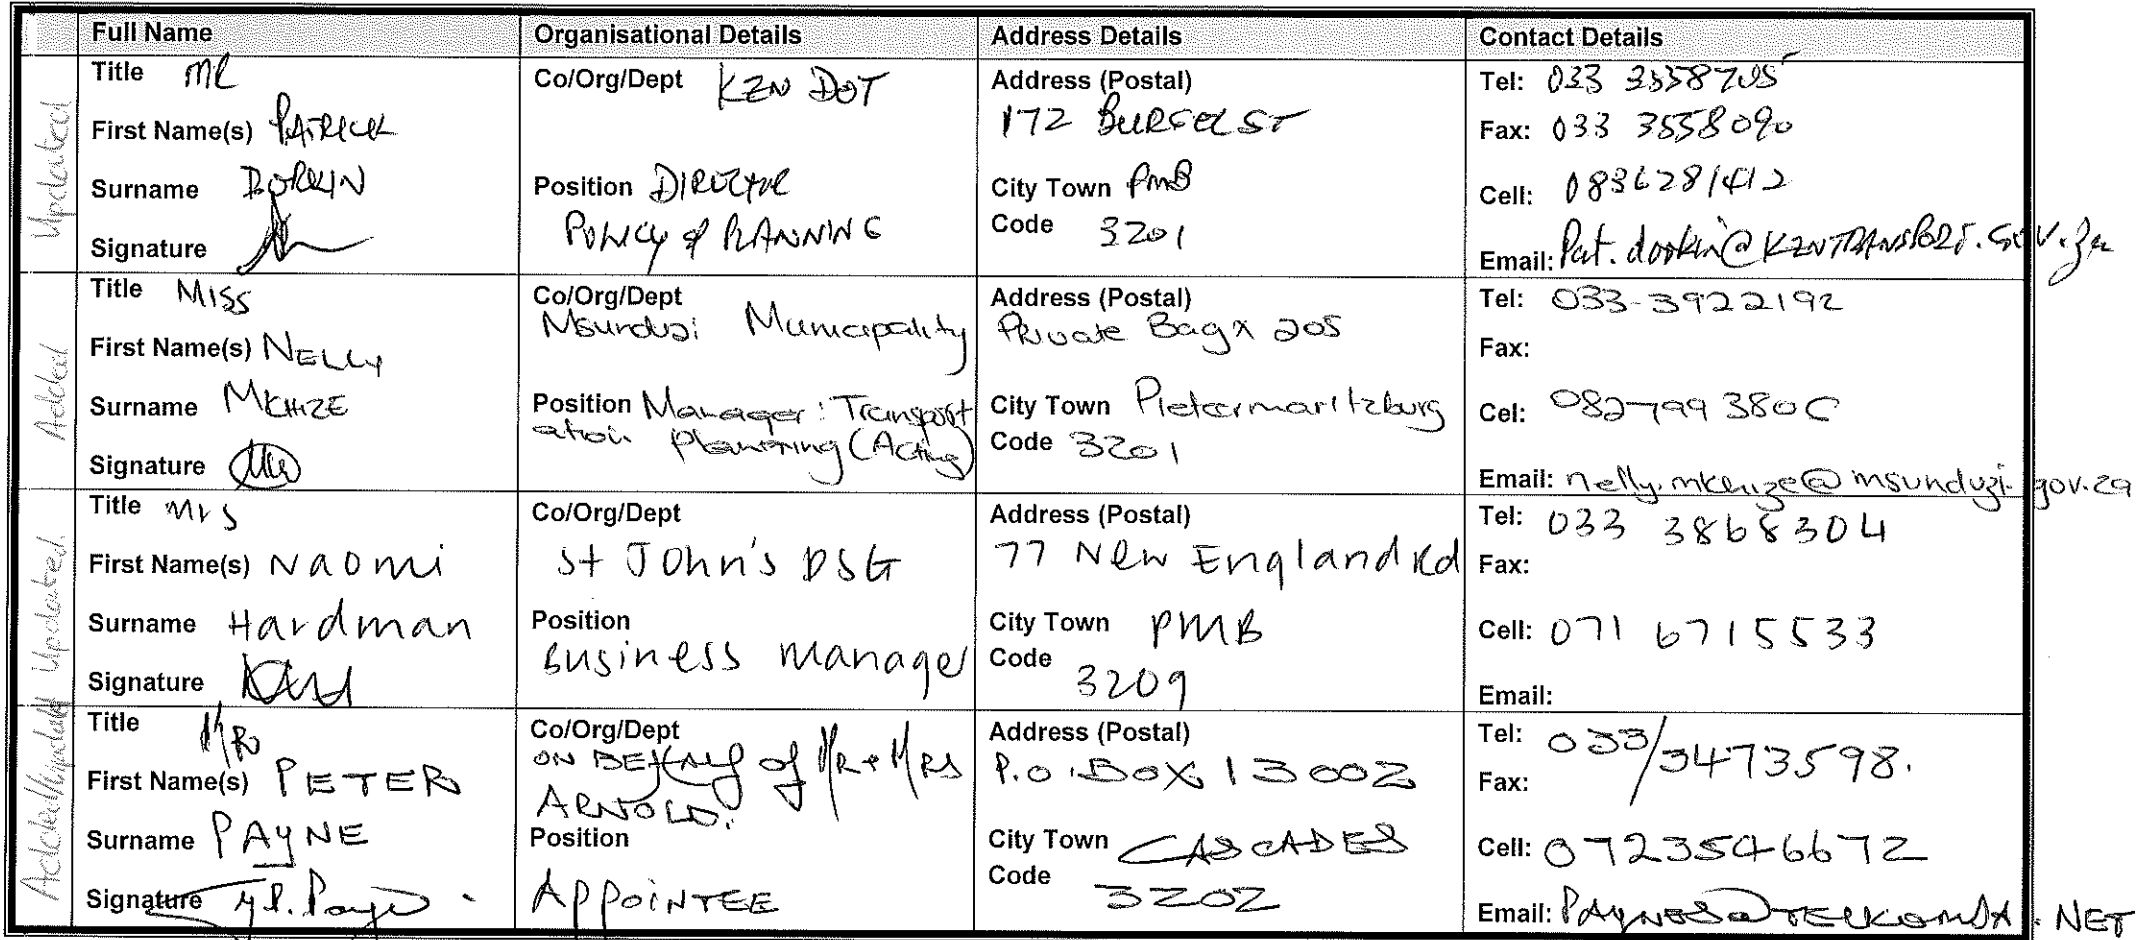 Full Name Organisational Details Address Details Contact Details
Updated
Title MR
First Name(s) PATRICK
Surname DORKIN
Signature
Co/Org/Dept KZN DOT
Position DIRECTOR
POLICY & PLANNING
Address (Postal)
172 BURGER ST
City Town PMB
Code 3201
Tel: 033 3558705
Fax: 033 3558090
Cell: 0836281412
Email: Pat.dorkin@KZNTRANSPORT.GOV.za
Added
Title MISS
First Name(s) NELLY
Surname MKHIZE
Signature
Co/Org/Dept
Msunduzi Municipality
Position Manager: Transport
ation Planning (Acting)
Address (Postal)
Private Bag X 205
City Town Pietermaritzburg
Code 3201
Tel: 033-3922192
Fax:
Cel: 082-799 3806
Email: nelly.mkhize@msunduzi.gov.za
Updated.
Title Mrs
First Name(s) Naomi
Surname Hardman
Signature
Co/Org/Dept
St John's DSG
Position
Business Manager
Address (Postal)
77 New England Rd
City Town PMB
Code
3209
Tel: 033 3868304
Fax:
Cell: 071 6715533
Email:
Added/Updated
Title MR
First Name(s) PETER
Surname PAYNE
Signature P. Payne
Co/Org/Dept
ON BEHALF of Mr & MRS
ARNOLD.
Position
APPOINTEE
Address (Postal)
P.O. BOX 13002
City Town CASCADES
Code
3202
Tel: 033/3473598.
Fax:
Cell: 0723546672
Email: PAYNES@TELKOMSA.NET